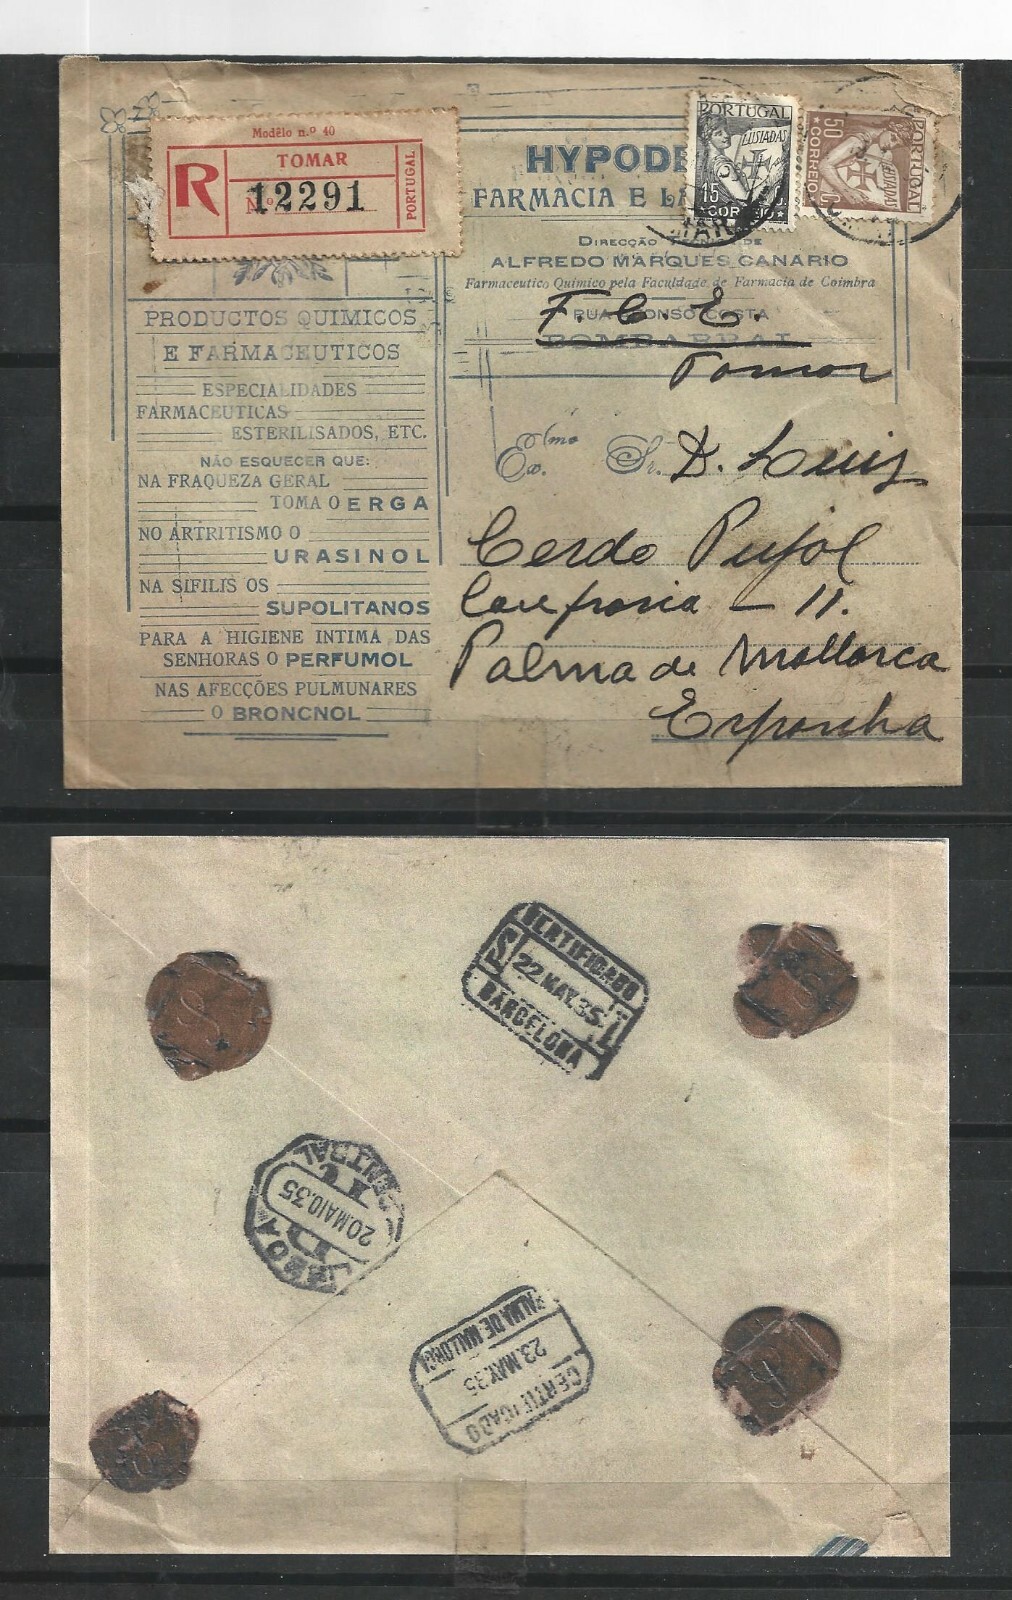 Modêlo n.º 40
R
TOMAR
Nº 12291
PORTUGAL
HYPODE
FARMACIA E L
DIRECÇÃO TECNICA DE
ALFREDO MARQUES CANARIO
Farmaceutico Quimico pela Faculdade de Farmacia de Coimbra
RUA AFONSO COSTA
BOMBARRAL
F. C. E.
Tomar
PORTUGAL
LUSIADAS
15 C.
CORREIO
PORTUGAL
LUSIADAS
50 C.
CORREIO
PRODUCTOS QUIMICOS
E FARMACEUTICOS
ESPECIALIDADES
FARMACEUTICAS
ESTERILISADOS, ETC.
NÃO ESQUECER QUE:
NA FRAQUEZA GERAL
TOMA O ERGA
NO ARTRITISMO O
URASINOL
NA SIFILIS OS
SUPOLITANOS
PARA A HIGIENE INTIMA DAS
SENHORAS O PERFUMOL
NAS AFECÇÕES PULMUNARES
O BRONCNOL
Ex.mo Sr. D. Luiz
Cerdo Pujol
Palma de Mallorca
Espanha
CERTIFICADO
22 MAY. 35
BARCELONA
CENTRAL
20.MAIO.35
LISBOA
PALMA DE MALLORCA
23. MAY. 35
CERTIFICADO